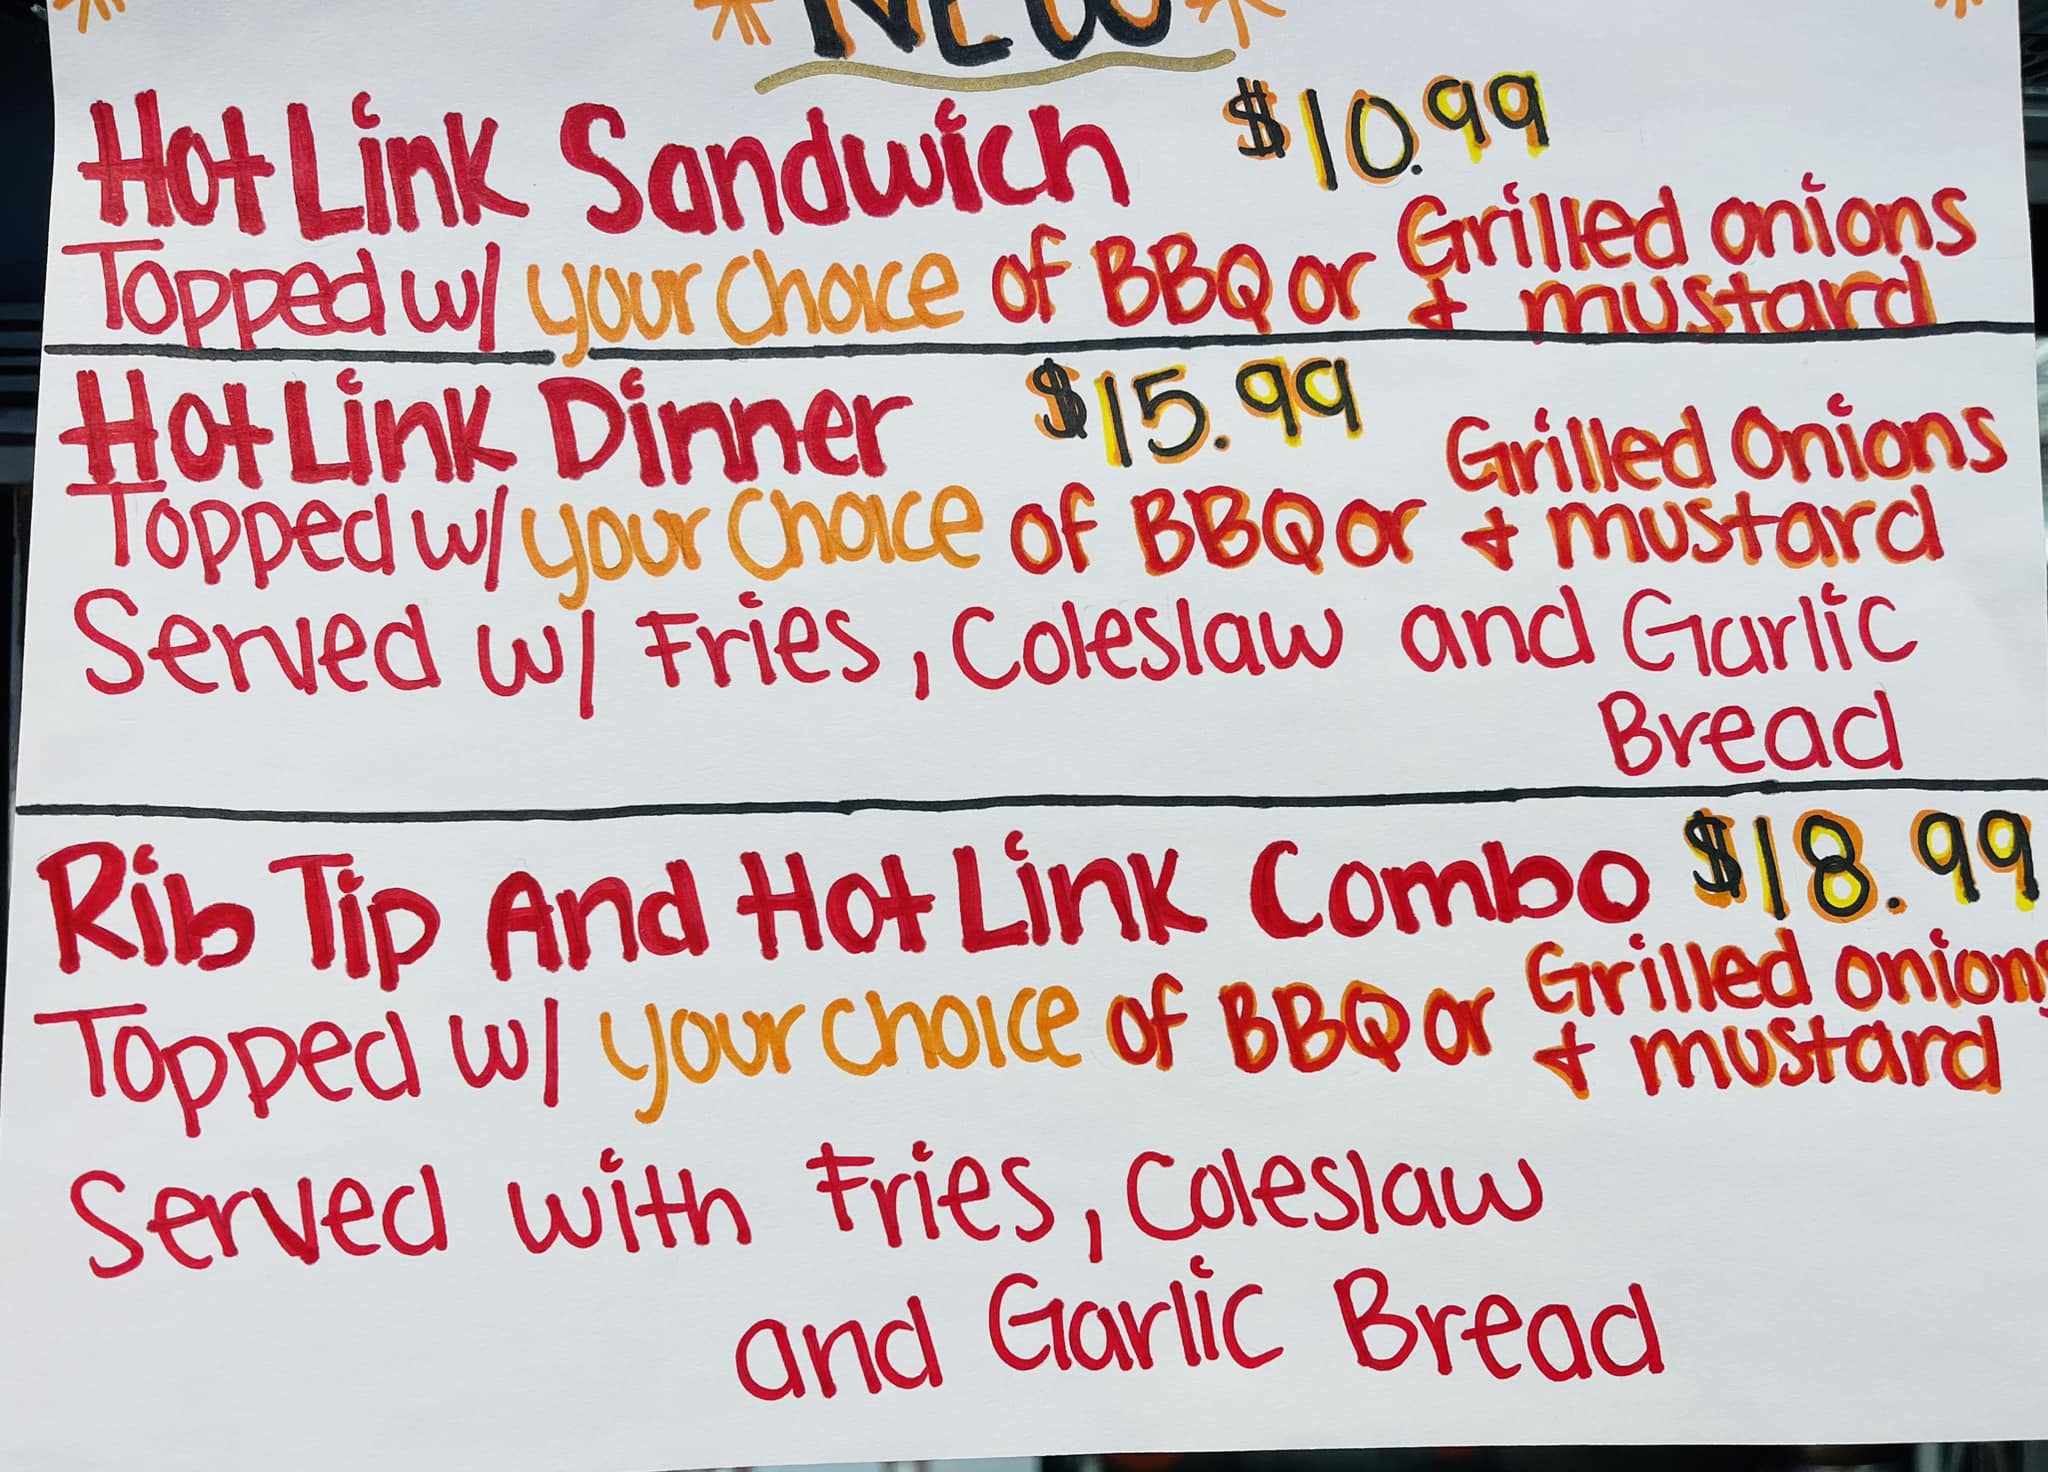 NEW
Hot Link Sandwich $10.99
Topped w/ your choice of BBQ or Grilled onions
& mustard
Hot Link Dinner $15.99
Topped w/ your choice of BBQ or Grilled Onions
& mustard
Served w/ Fries, Coleslaw and Garlic
Bread
Rib Tip And Hot Link Combo $18.99
Topped w/ your choice of BBQ or Grilled onions
& mustard
Served with Fries, Coleslaw
and Garlic Bread